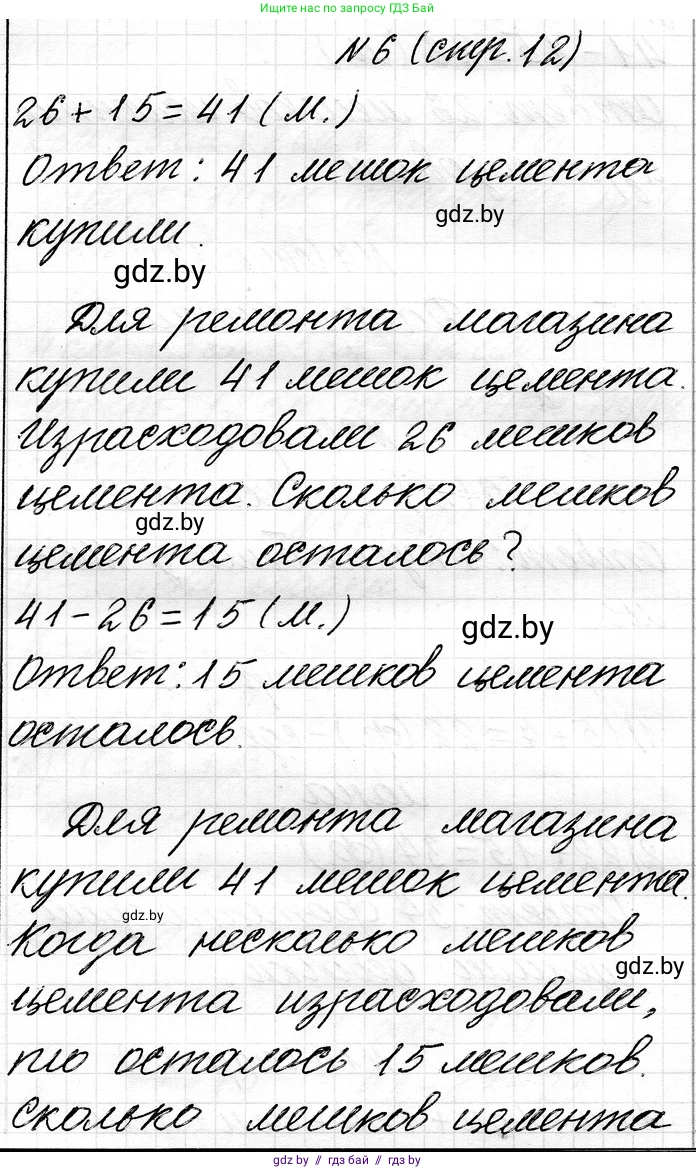 Ищите нас по запросу ГДЗ Бай
№6 (стр. 12)
26+15=41 (м.)
Ответ: 41 мешок цемента
gdz.by
купили.
gdz.by
Для ремонта магазина
купили 41 мешок цемента.
Израсходовали 26 мешков
цемента. Сколько мешков
gdz.by
цемента осталось?
41-26=15 (м.)
gdz.by
Ответ: 15 мешков цемента
осталось.
Для ремонта магазина
купили 41 мешок цемента.
gdz.by
Когда несколько мешков
gdz.by
цемента израсходовали,
то осталось 15 мешков.
Сколько мешков цемента
gdz.by // гдз бай // gdz.by